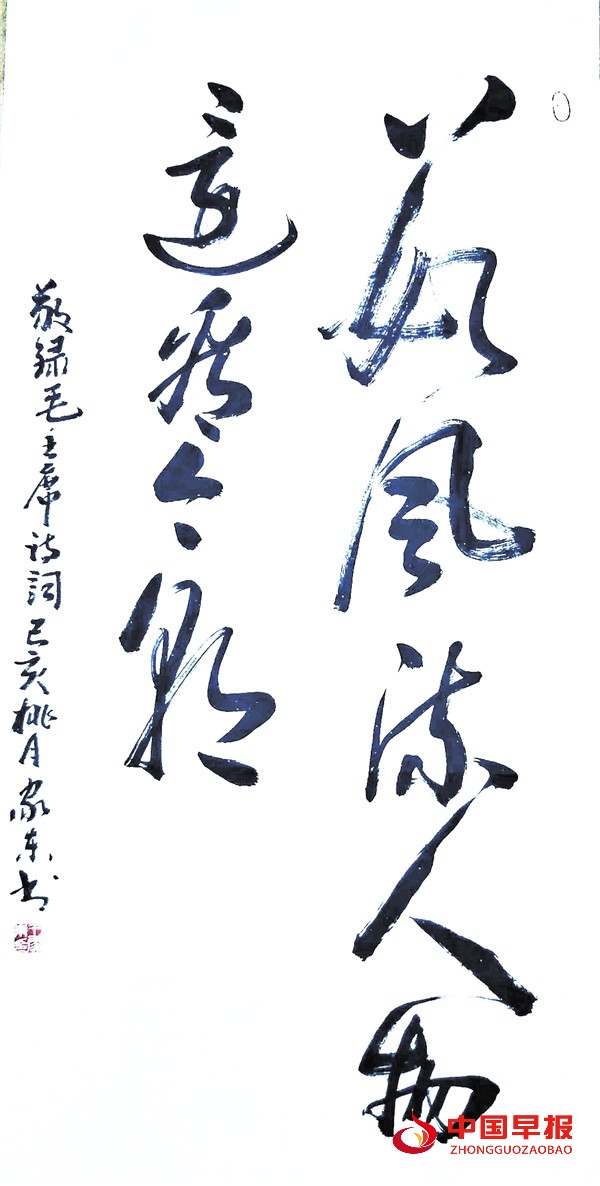 数风流人物
還看今朝
敬録毛主席诗詞己亥桃月家东书
中国早报
ZHONGGUOZAOBAO